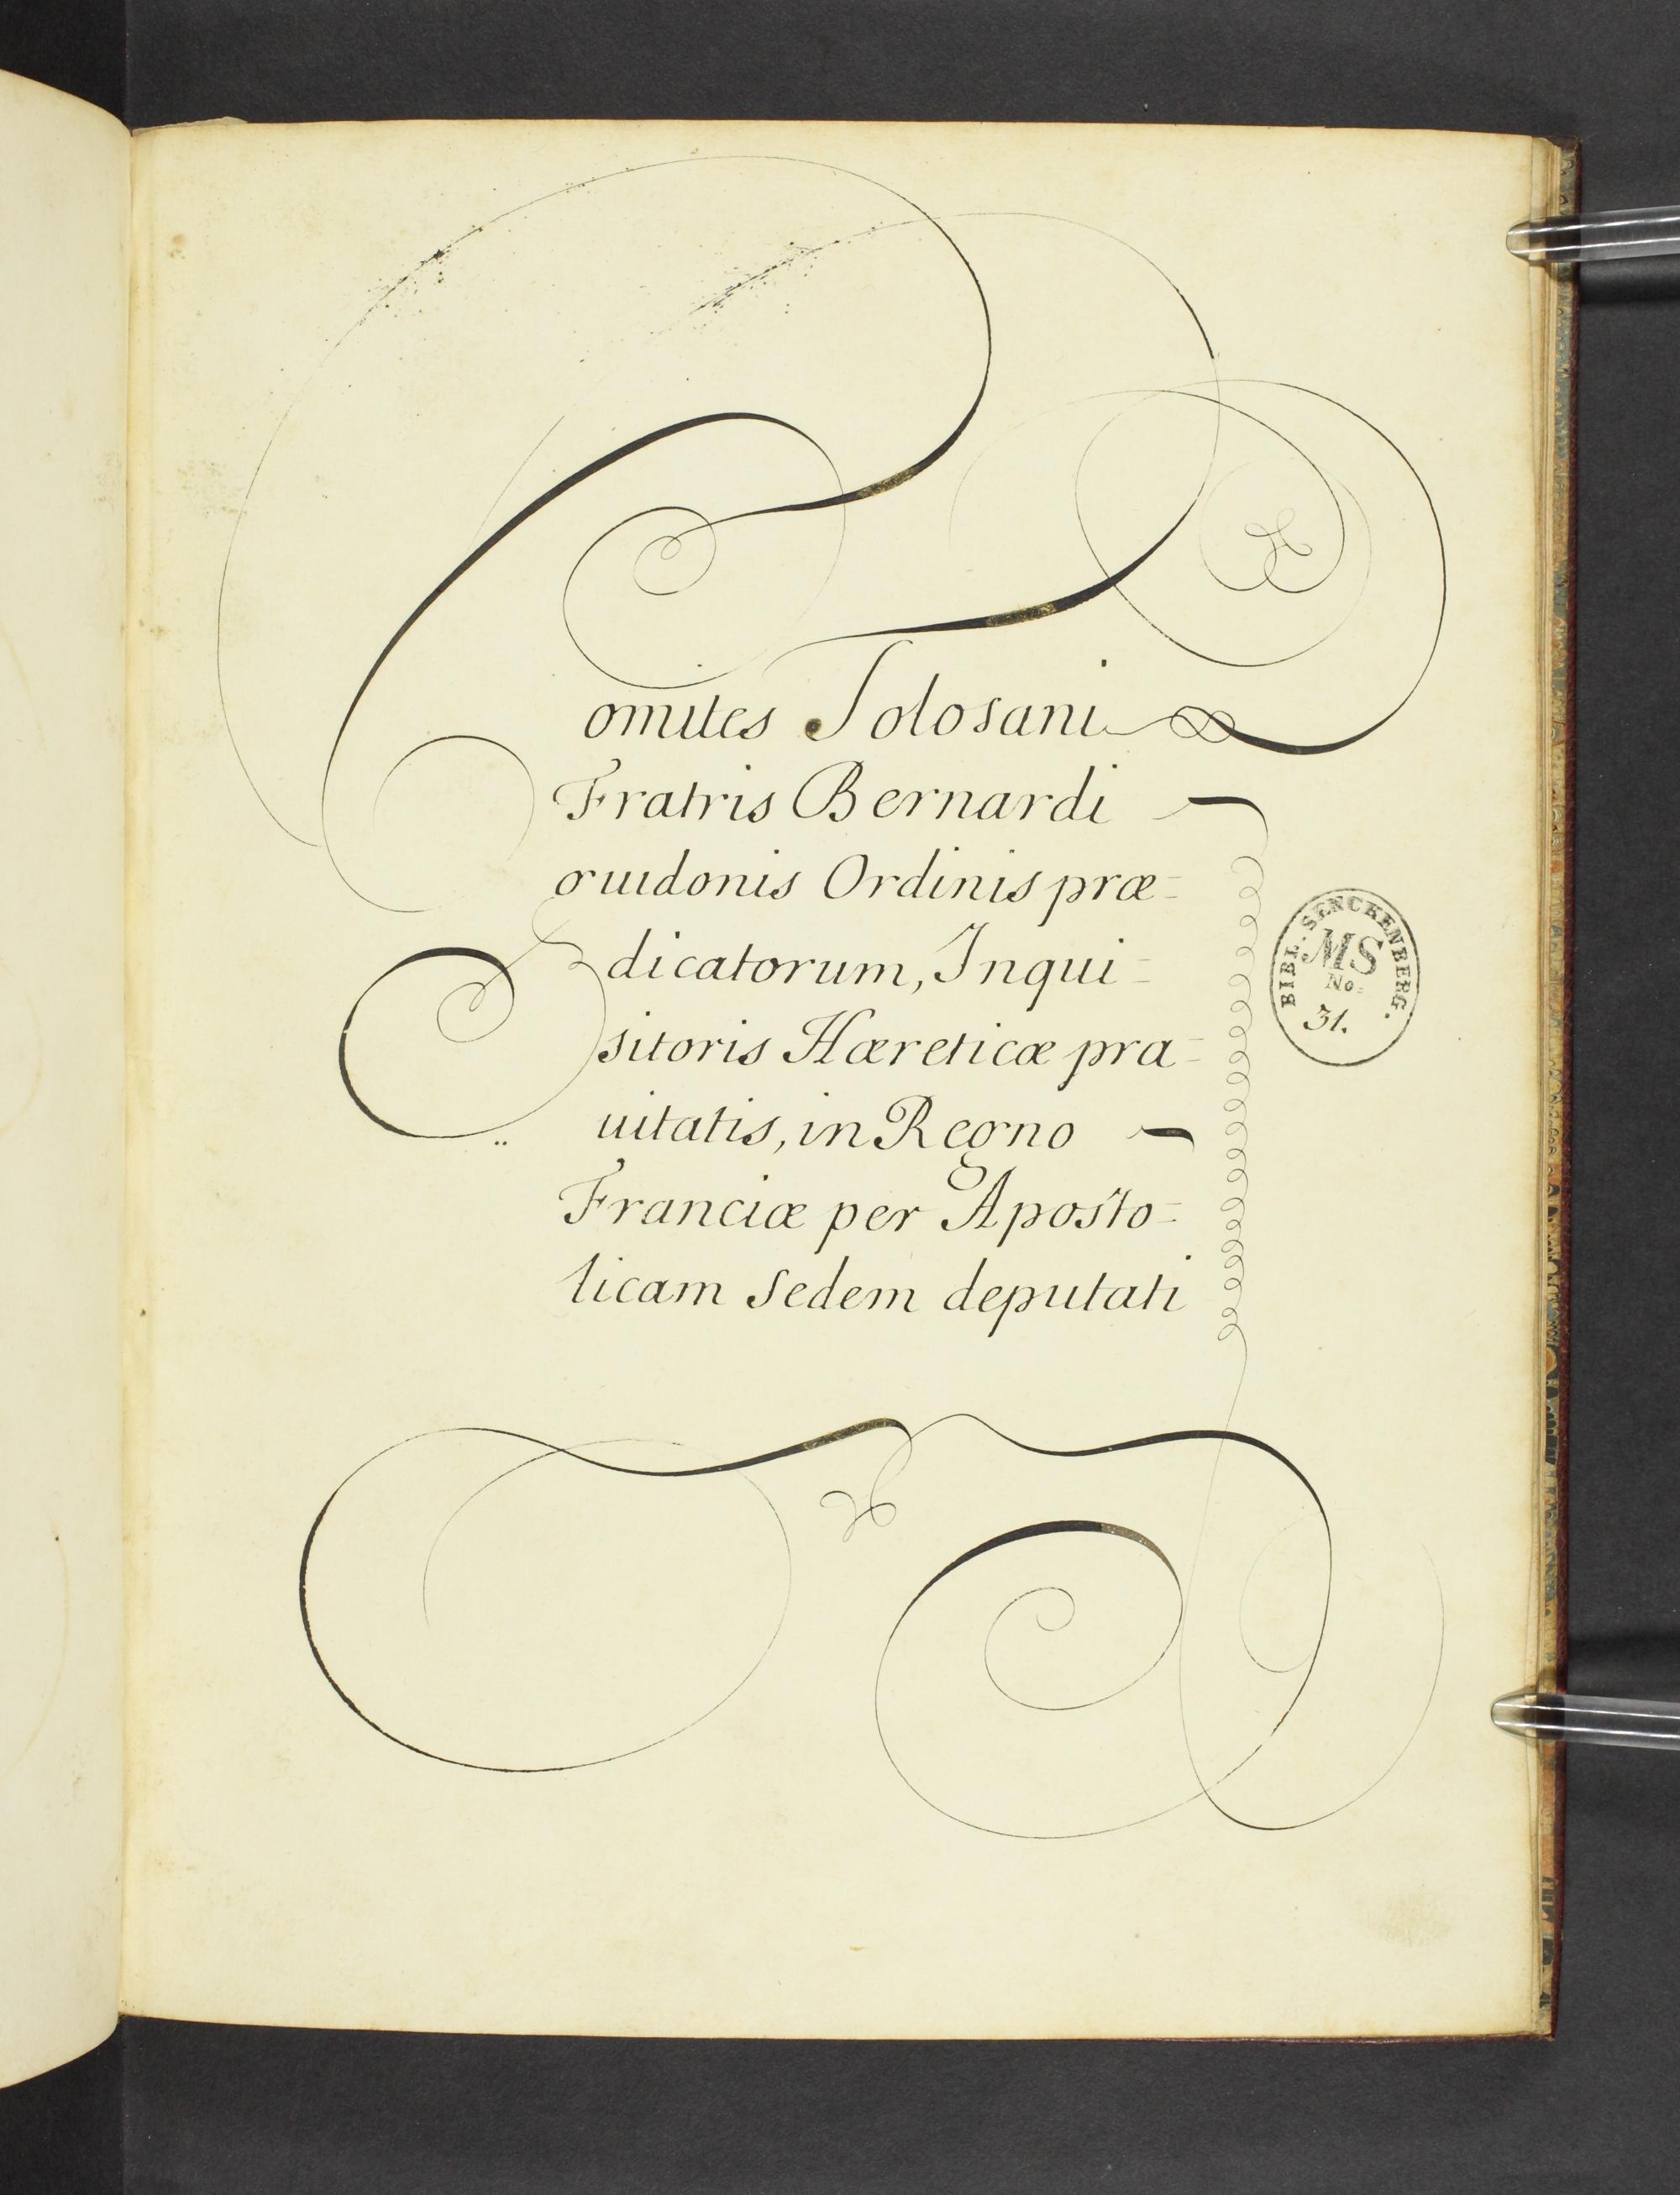 Comites Tolosani
Fratris Bernardi
Guidonis Ordinis præ=
dicatorum, Inqui=
sitoris Hæreticæ pra=
uitatis, in Regno
Franciæ per Aposto=
licam Sedem deputati
BIBL. SENCKENBERG.
MS
No.
31.